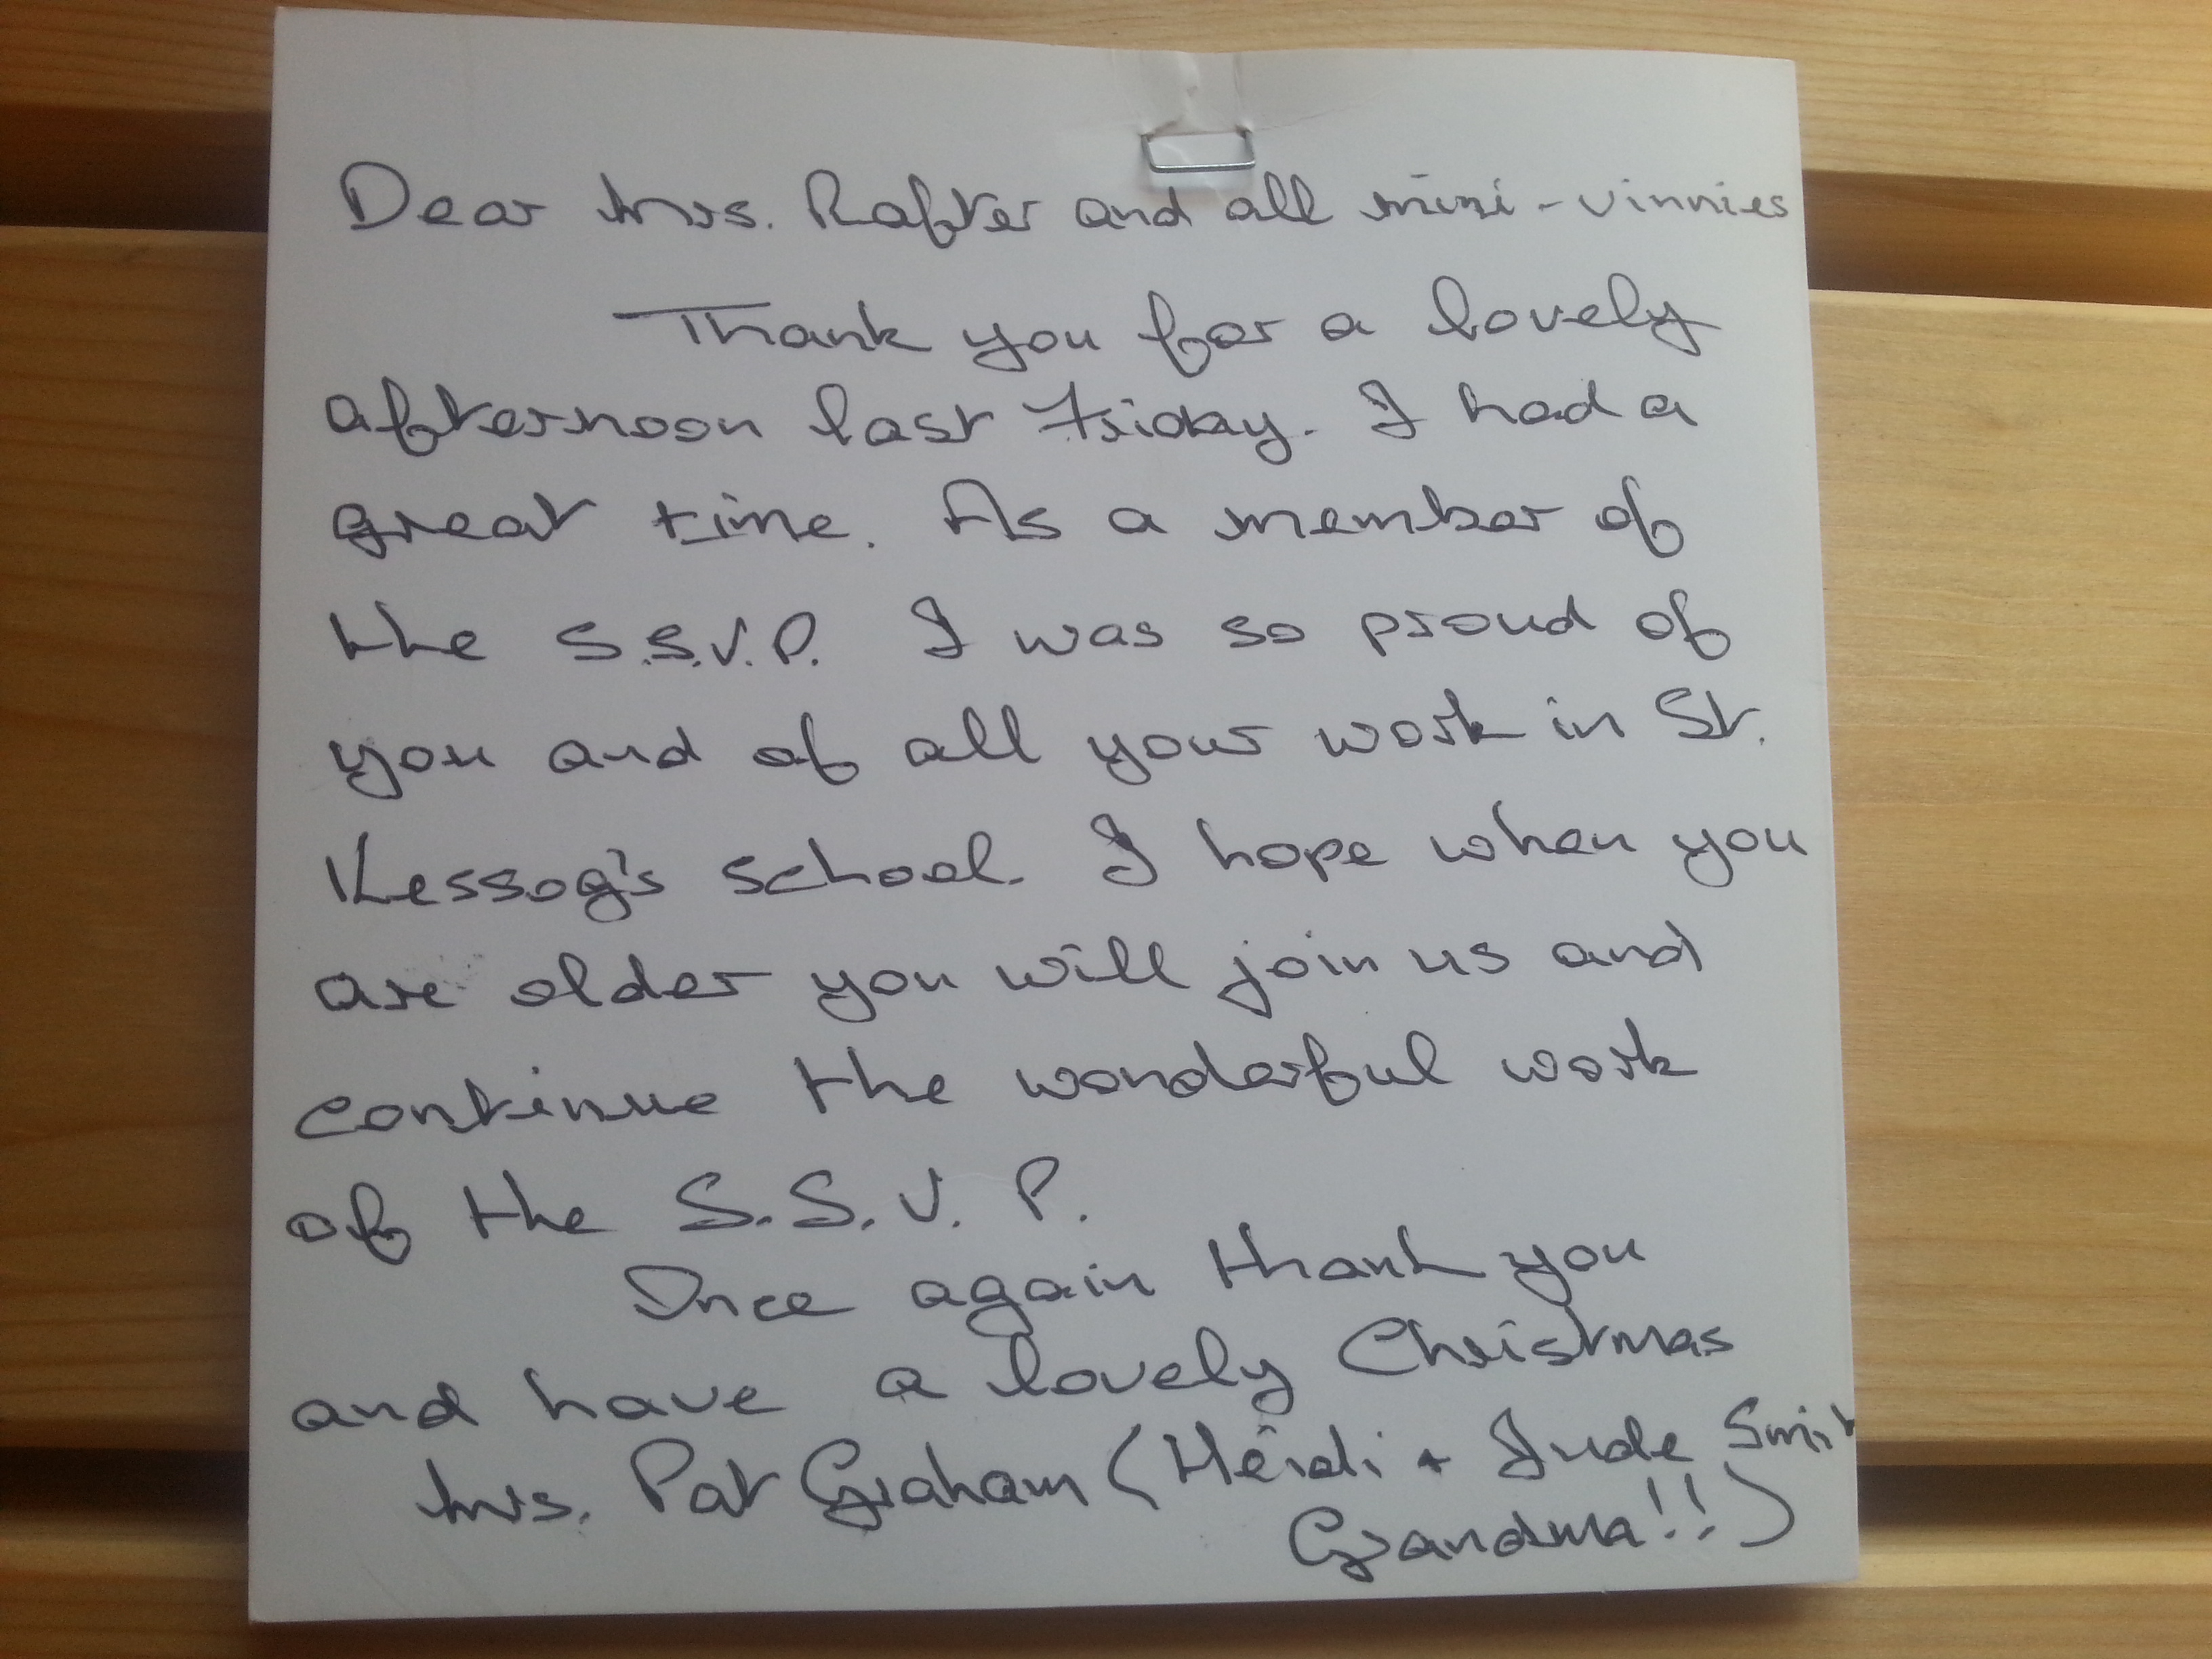 Dear Mrs. Rafter and all mini-vinnies
Thank you for a lovely
afternoon last Friday. I had a
great time. As a member of
the S.S.V.P. I was so proud of
you and of all your work in St.
Kessog's school. I hope when you
are older you will join us and
continue the wonderful work
of the S.S.V.P.
Once again thank you
and have a lovely Christmas
Mrs. Pat Graham (Heidi + Jude Smith
Grandma!!)